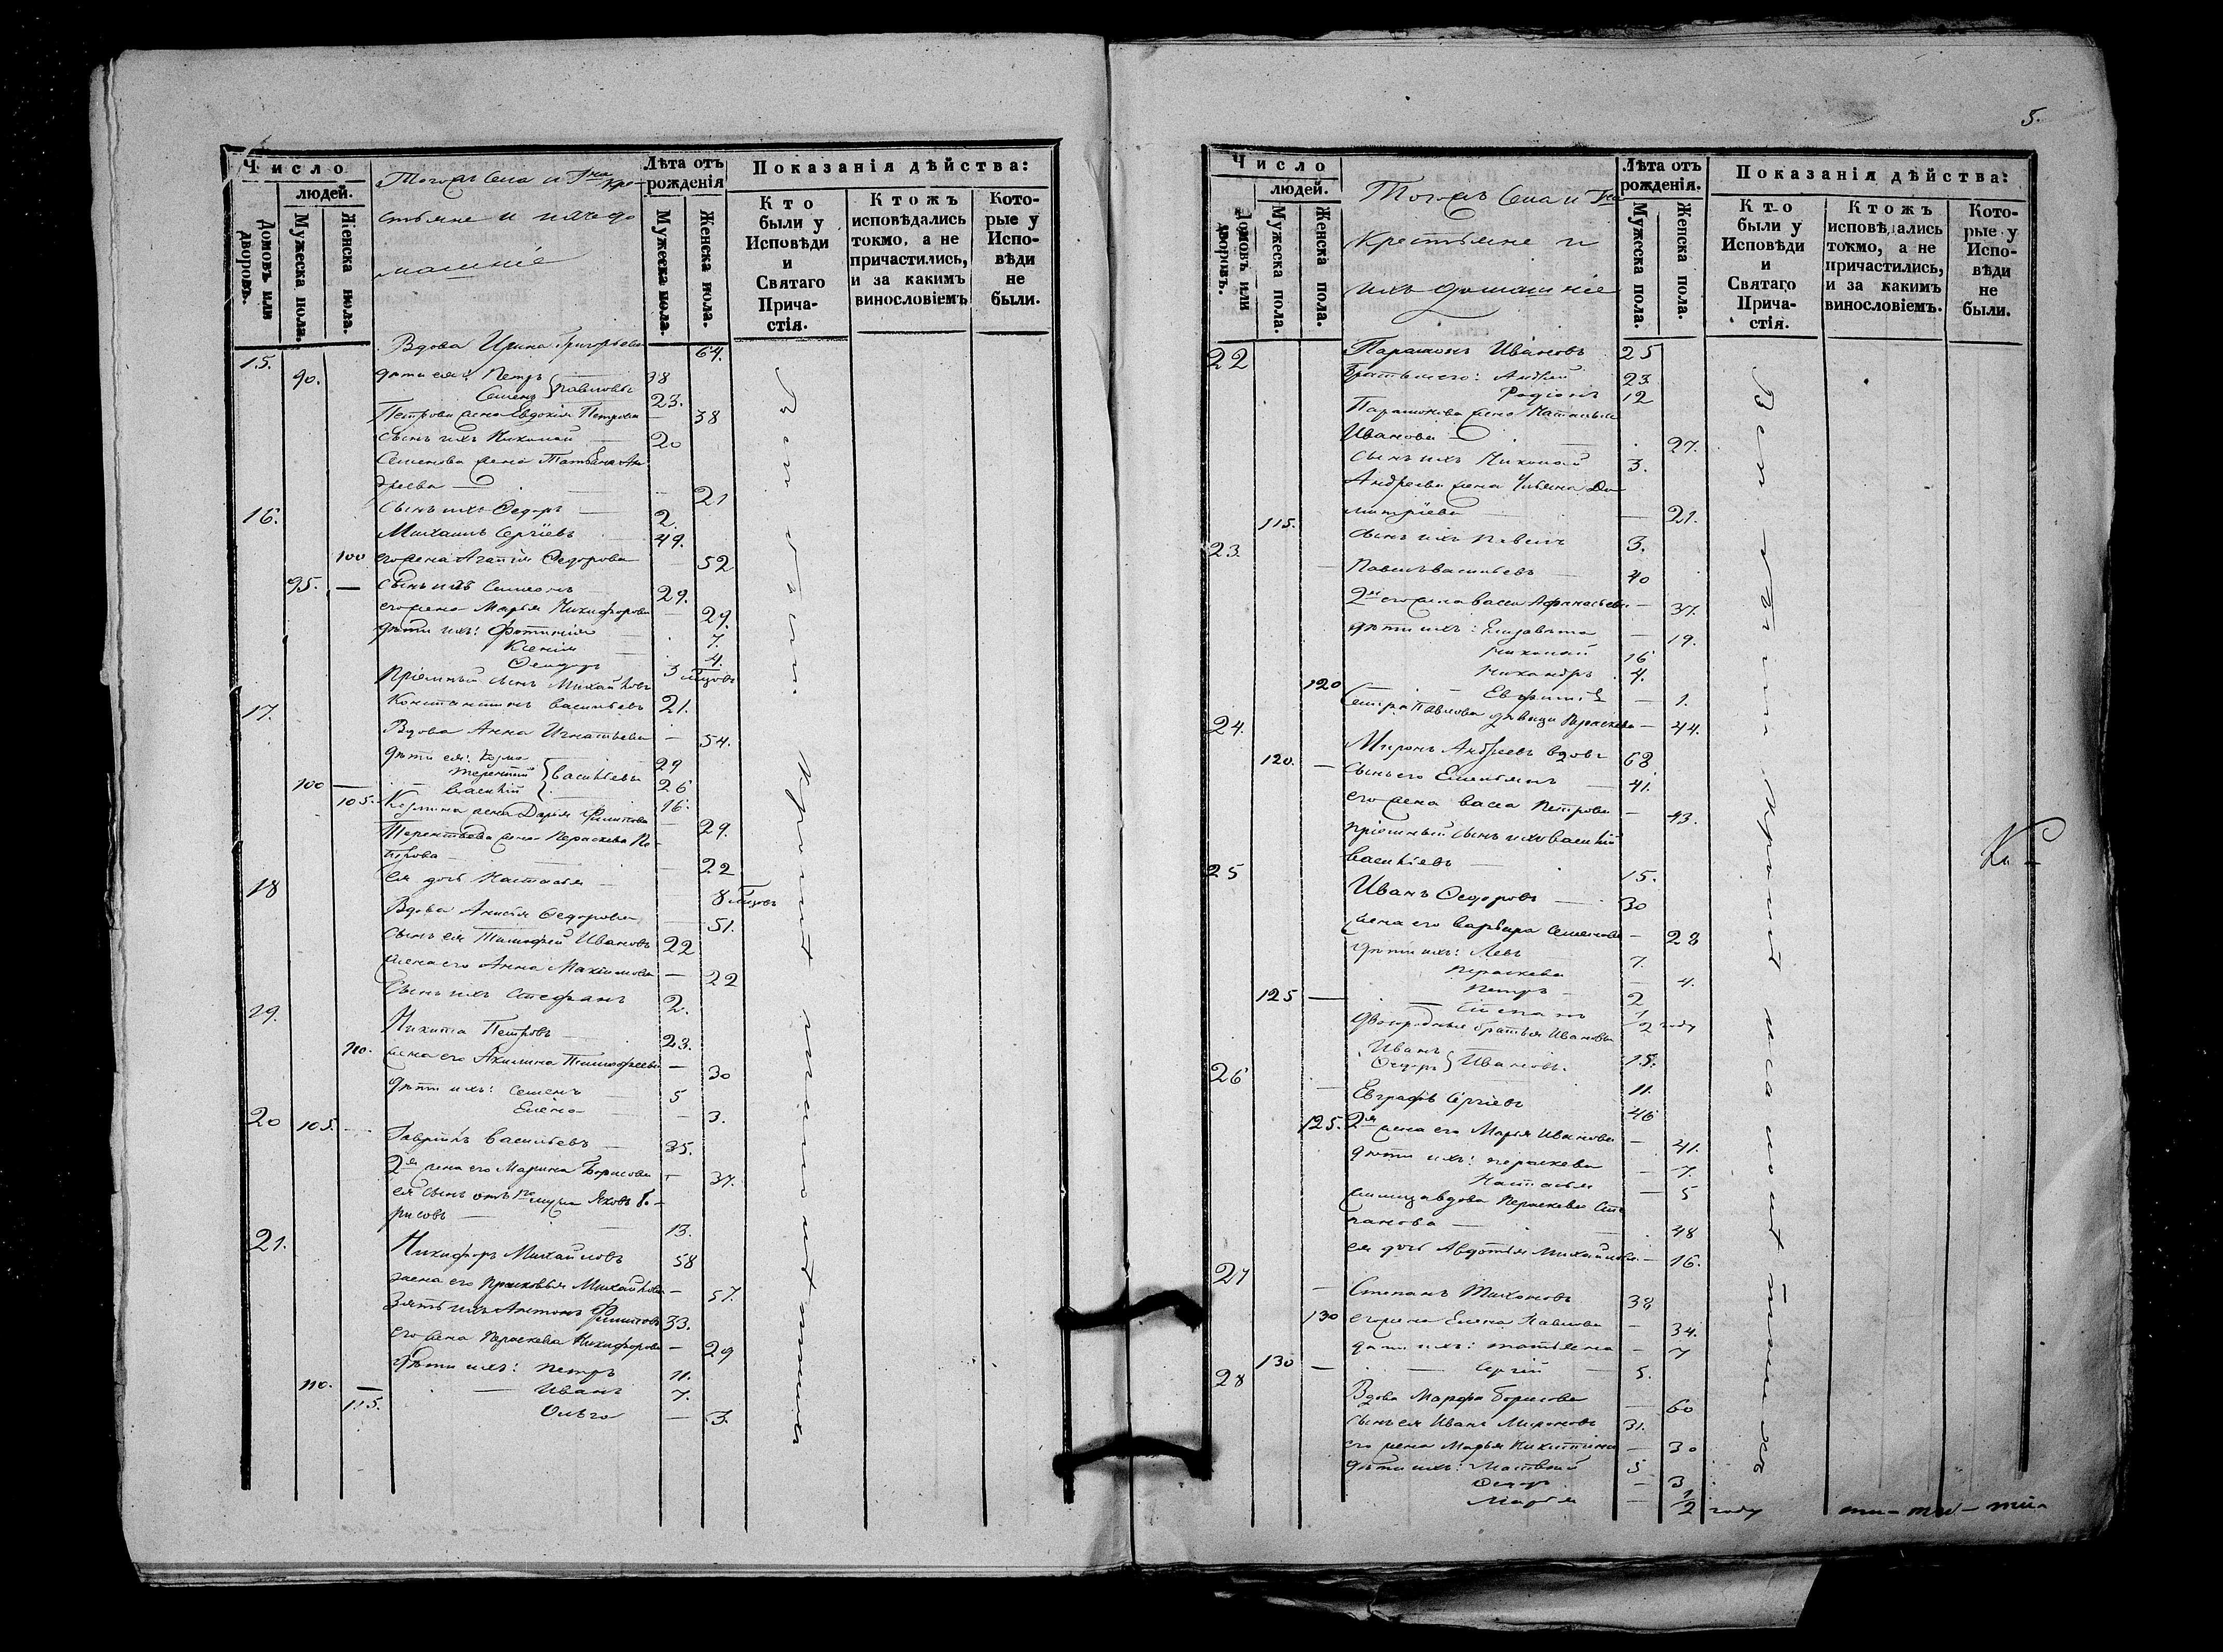 Число
людей.
Домовъ или дворовъ.
Мужеска пола.
Женска пола.
Тогожъ Села и Гна кре-
стьяне и ихъ до
машніе
Лѣта отъ рожденія
Мужеска пола.
Женска пола.
Показанія дѣйства:
Кто были у Исповѣди и Святаго Прича- стія.
Ктожъ исповѣдались токмо, а не причастились, и за какимъ винословіемъ
Кото- рые у Испо- вѣди не были.
15. Вдова Ирина Григорьева 64.
90. дѣти ея: Петръ 38
Семенъ } Павловы 23.
Петрова жена Евдокія Петрова — 38
сынъ ихъ Николай — 20
Семенова жена Татьяна Ан
дреева — — 21
сынъ ихъ Ѳедоръ — 2.
16. Михаилъ Сергіевъ 49.
100 его жена Агапія Ѳедорова — 52
95. — сынъ ихъ Симеонъ 29.
его жена Марья Никифорова — 29.
дѣти ихъ: Фотинія — 7.
Ксенія — 4.
Ѳеодоръ 3 мѣсяцовъ
Пріемный сынъ Михайловъ
Константинъ Васильевъ 21.
17. Вдова Анна Игнатьева — 54.
дѣти ея: Козма 29
Терентій } Васильевы 26
100 — Василій 16.
105. Козмина жена Дарья Филипова 29.
Терентьева жена Параскева Пе
трова — — 22
ея дочь Настасья — 8 мѣсяцовъ
18 Вдова Анисья Ѳедорова — 51.
сынъ ея Тимофей Ивановъ 22
жена его Анна Максимова — 22
Сынъ ихъ Стефанъ 2.
19. Никита Петровъ 23.
110. жена его Акилина Тимофеева — 30
дѣти ихъ: Семенъ — 5
Елена — 3.
20 105. — Гаврилъ Васильевъ — 35.
2я жена его Марина Борисова — 37.
ея сынъ отъ 1го мужа Яковъ Бо-
рисовъ — 13.
21. Никифоръ Михайловъ 58
жена его Прасковья Михайлова — 57.
Зять ихъ Антонъ Филиповъ 33.
его жена Параскева Никифорова — 29
дѣти ихъ: Петръ 11.
110. — Иванъ 7.
115. Ольга — 3.
Всѣ были крома малолѣтнихъ
5.
Число
людей.
Домовъ или дворовъ.
Мужеска пола.
Женска пола.
Тогожъ Села и Гна
Крестьяне и
ихъ домашніе
Лѣта отъ рожденія.
Мужеска пола.
Женска пола.
Показанія дѣйства:
Кто были у Исповѣди и Святаго Прича- стія.
Ктожъ исповѣдались токмо, а не причастились, и за какимъ винословіемъ.
Кото- рые у Испо- вѣди не были.
22 Парамонъ Ивановъ 25
Братья его: Андрей 23.
Родіонъ 12
Парамонова жена Наталья
Иванова — 27.
сынъ ихъ Николай 3.
Андреева жена Ульяна Дми
митріева — 21.
115. сынъ ихъ Павелъ 3.
23. Павелъ Васильевъ — 40
2я его жена Васса Афанасьева — 37.
дѣти ихъ: Елизавета — 19.
Николай 16
Никандръ 4.
120 Евфимія — 1.
Сестра Павлова дѣвица Параскева — 44.
24. Миронъ Андреевъ вдовъ 68
120. — Сынъ его Емельянъ 41.
его жена Васса Петрова — 43.
пріемный сынъ ихъ Василій
Васильевъ — 15.
25 Иванъ Ѳедоровъ — 30
жена его Варвара Семенова — 28
дѣти ихъ: Левъ 7.
Параскева — 4.
Петръ 2
125 — 1/2 году
двоюродные братья Ивановы
Иванъ 15.
Ѳедоръ } Ивановы. 11.
26 Евграфъ Сергіевъ 46
125. 2я жена его Марья Иванова — 41.
дѣти ихъ: Параскева — 7.
Настасья — 5
вдова Параскева Сте
панова — 48
ея дочь Авдотья Михайлова — 16.
27 Степанъ Тихоновъ 38
130 его жена Елена Павлова — 34.
дѣти ихъ: Татьяна — 7
130 — Сергій 5.
28 Вдова Марфа Борисова — 60
сынъ ея Иванъ Мироновъ 31.
его жена Марья Никитина — 30
дѣти ихъ: Матвей 5
— 3
Марья — 1/2 году
Всѣ были крома малолѣтнихъ